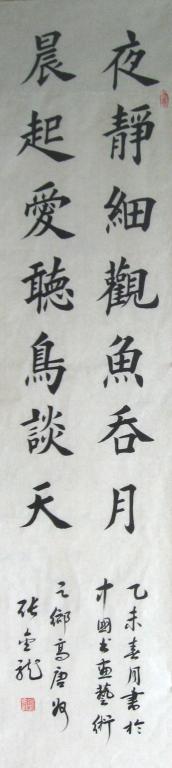 夜靜細觀魚吞月
晨起愛聽鳥談天
乙未春月書於
中國書画藝術
之鄉高唐州
張金龍